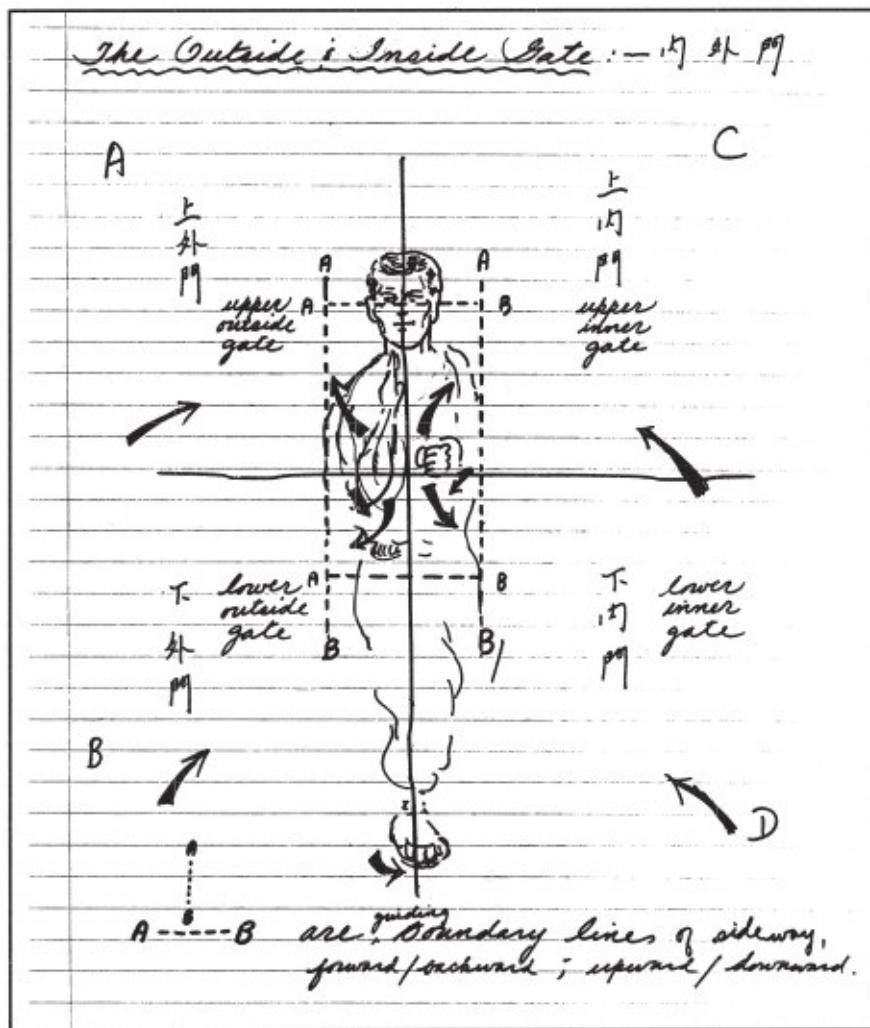 The Outside & Inside Gate :— 内外門
A
C
上外門
上内門
A
A
A
B
upper
outside
gate
upper
inner
gate
A
B
下外門
lower
outside
gate
下内門
lower
inner
gate
B
B
B
D
A
B
A B are guiding boundary lines of sideway,
forward/backward ; upward/downward.